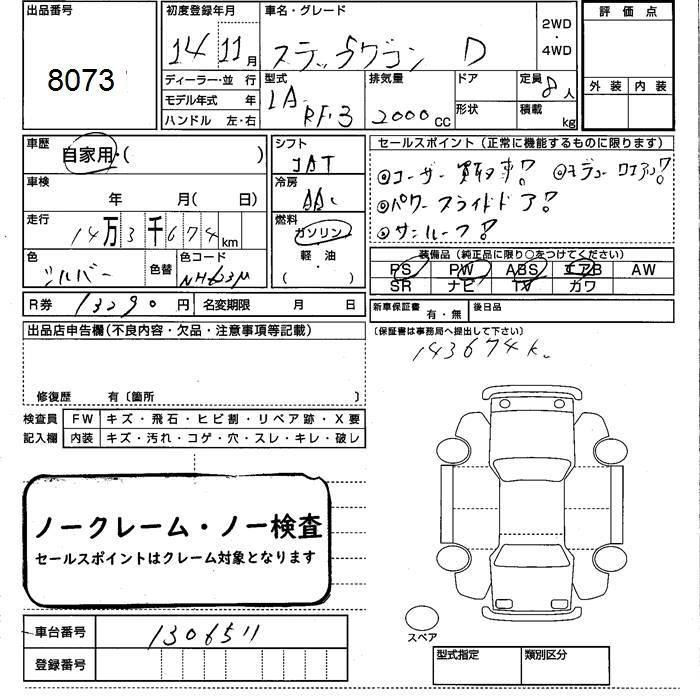 出品番号
8073
初度登録年月
14 11月
車名・グレード
ステップワゴン D
2WD
・
4WD
評価点
外装 内装
ディーラー・並行
モデル年式 年
ハンドル 左・右
型式
LA
RF・3
排気量
2000cc
ドア
形状
定員
8人
積載
kg
車歴
自家用・( )
車検
年 月( 日)
走行
14万3千674km
色
シルバー
色替
色コード
NH623M
シフト
AT
冷房
AAC
燃料
ガソリン
軽油
( )
セールスポイント(正常に機能するものに限ります)
◎ユーザー買取車!!
◎パワースライドドア!!
◎サンルーフ!!
装備品(純正品に限り○をつけてください)
PS PW ABS エアB AW
SR ナビ TV カワ
R券 13290円
名変期限 月 日
新車保証書 有・無
後日品
(保証書は事務局へ提出して下さい)
143674k
出品店申告欄(不良内容・欠品・注意事項等記載)
修復歴 有〔箇所 〕
検査員
記入欄
FW キズ・飛石・ヒビ割・リペア跡・X要
内装 キズ・汚れ・コゲ・穴・スレ・キレ・破レ
ノークレーム・ノー検査
セールスポイントはクレーム対象となります
車台番号 1306511
登録番号
スペア
型式指定 類別区分